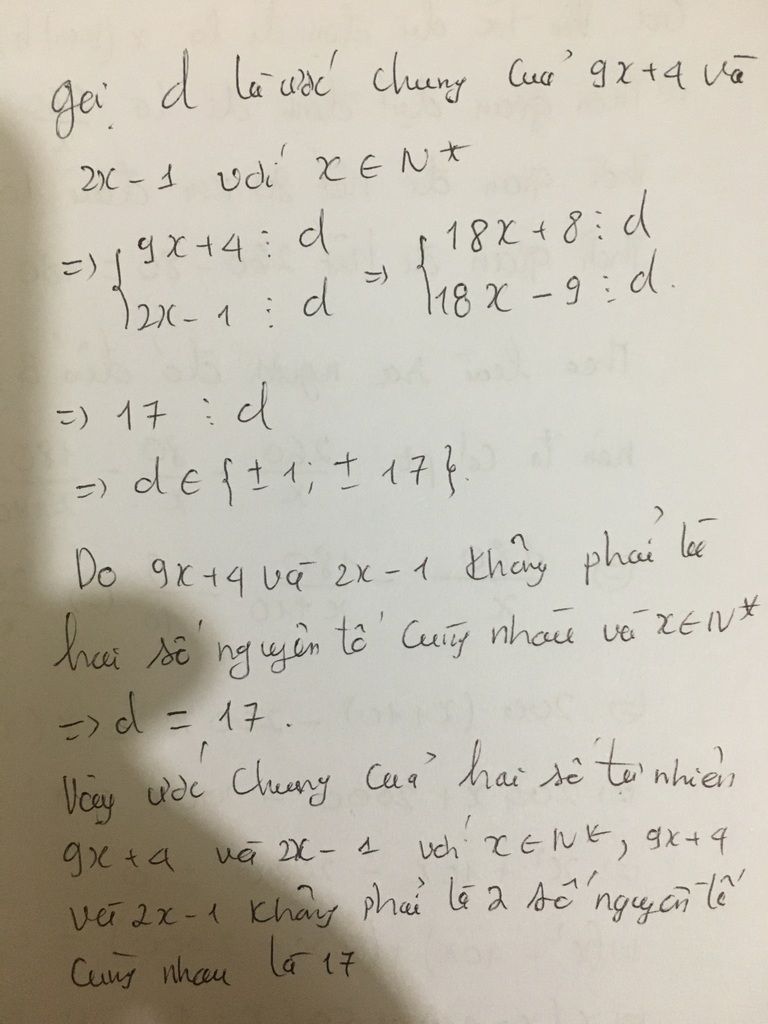 Gọi d là ước chung của 9x+4 và
2x-1 với x ∈ N*
=> { 9x+4 ⋮ d => { 18x+8 ⋮ d
2x-1 ⋮ d 18x-9 ⋮ d.
=> 17 ⋮ d
=> d ∈ {±1; ±17}.
Do 9x+4 và 2x-1 không phải là
hai số nguyên tố cùng nhau và x∈N*
=> d = 17.
Vậy ước chung của hai số tự nhiên
9x+4 và 2x-1 với x∈N*, 9x+4
và 2x-1 không phải là 2 số nguyên tố
cùng nhau là 17